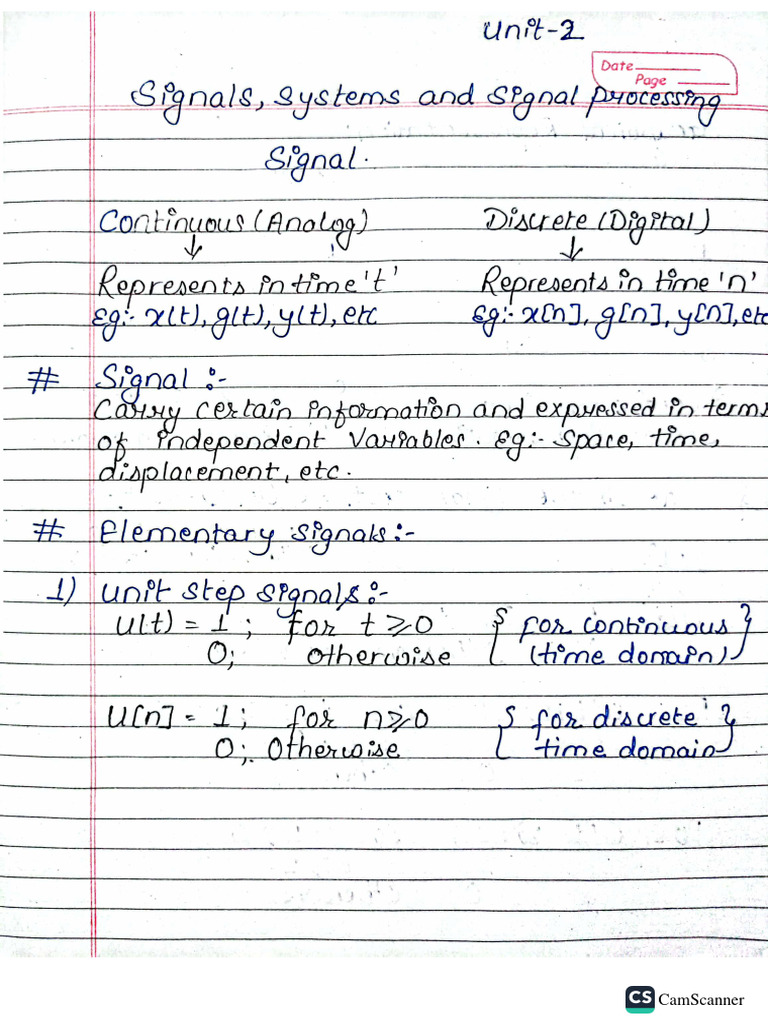 Unit-2
Date
Page
Signals, Systems and Signal processing
Signal.
Continuous (Analog) Discrete (Digital)
↓ ↓
Represents in time 't' Represents in time 'n'
Eg:- x(t), g(t), y(t), etc Eg:- x[n], g[n], y[n], etc
# Signal :-
Carry certain information and expressed in terms
of independent variables. Eg:- Space, time,
displacement, etc.
# Elementary signals:-
1) Unit step signals:-
U(t) = 1 ; for t ≥ 0 { for continuous }
0; otherwise (time domain)
U[n] = 1; for n ≥ 0 { for discrete }
0; Otherwise time domain
CS CamScanner